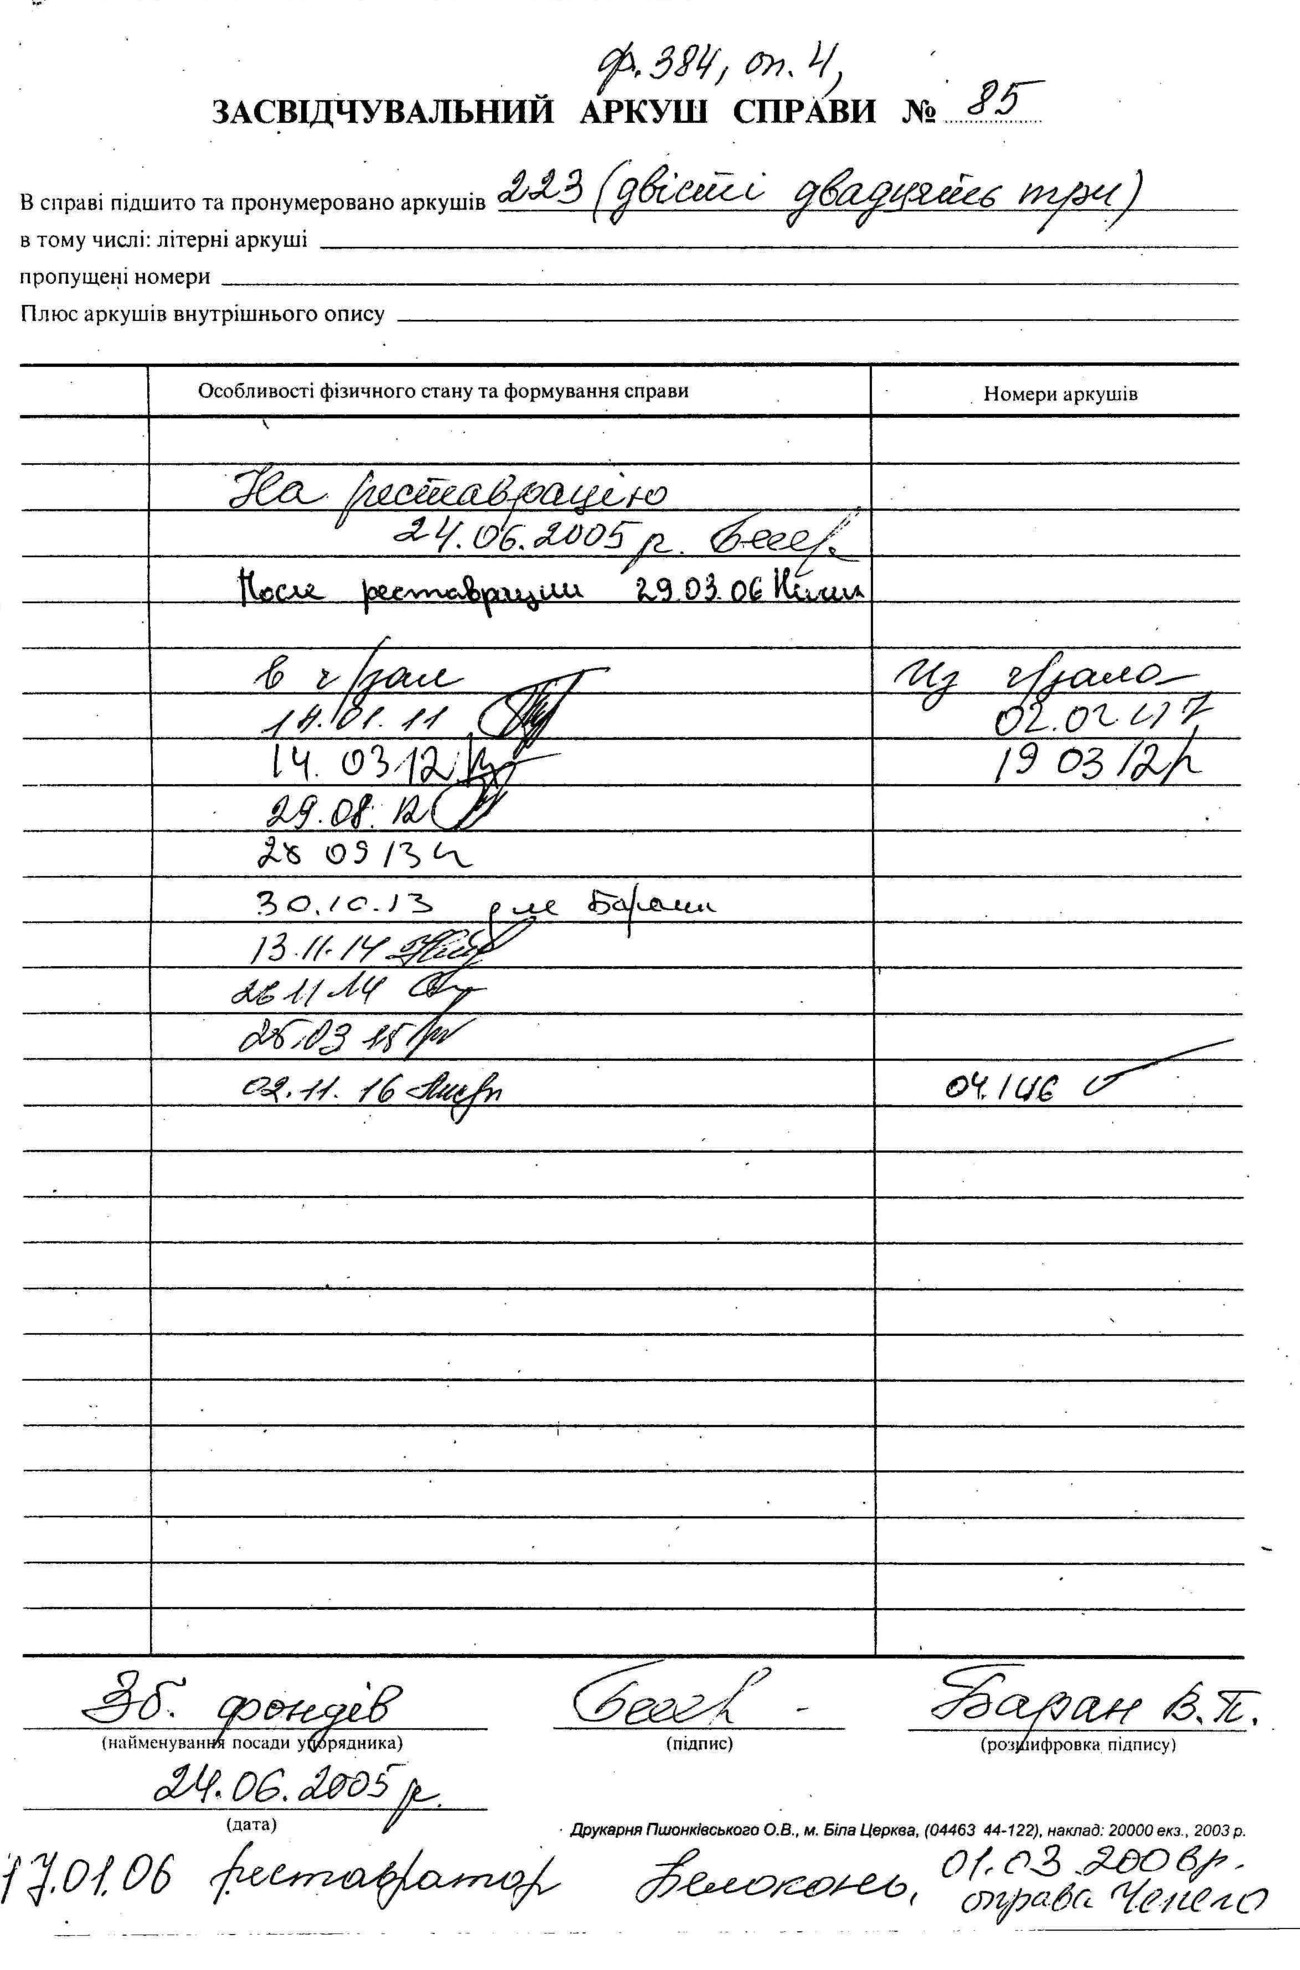 ф. 384, оп. 4,
ЗАСВІДЧУВАЛЬНИЙ АРКУШ СПРАВИ № 85
В справі підшито та пронумеровано аркушів 223 (двісті двадцять три)
в тому числі: літерні аркуші
пропущені номери
Плюс аркушів внутрішнього опису
Особливості фізичного стану та формування справи Номери аркушів
На реставрацію
24.06.2005 р.
После реставрации 29.03.06
в ч/зал Из ч/зала
14.01.11 02.02
14. 03 12 19 03 12р
29.08.12
28 09 13
30.10.13 для
13.11.14
26 11 14
25.03 15
02.11.16
Зб. фондів Баран В.П.
(найменування посади упорядника) (підпис) (розшифровка підпису)
24.06.2005 р.
(дата)
Друкарня Пшонківського О.В., м. Біла Церква, (04463 44-122), наклад: 20000 екз., 2003 р.
17.01.06 реставратор Белоконь, 01.03.2006р.
оправа Чепело